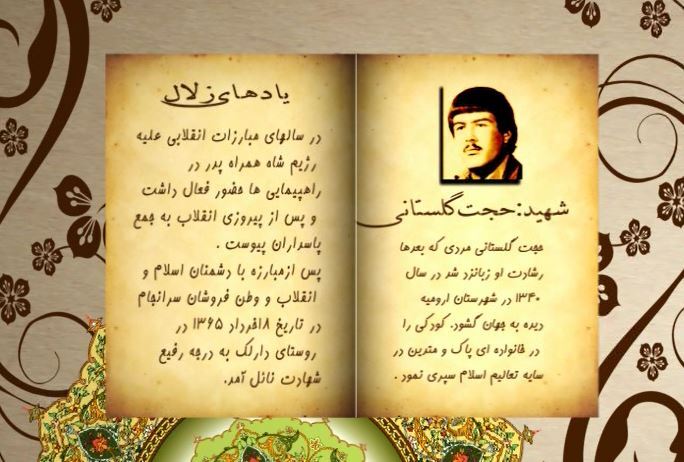 شهید:حجت گلستانی
حجت گلستانی مردی که بعدها
رشادت او زبانزد شد در سال
۱۳۴۰ در شهرستان ارومیه
دیده به جهان گشود. کودکی را
در خانواده ای پاک و متدین در
سایه تعالیم اسلام سپری نمود .
یادهای زلال
در سالهای مبارزات انقلابی علیه
رژیم شاه همراه پدر در
راهپیمایی ها حضور فعال داشت
و پس از پیروزی انقلاب به جمع
پاسداران پیوست .
پس ازمبارزه با دشمنان اسلام و
انقلاب و وطن فروشان سرانجام
در تاریخ ۱۸خرداد ۱۳۶۵ در
روستای دارلک به درجه رفیع
شهادت نائل آمد.